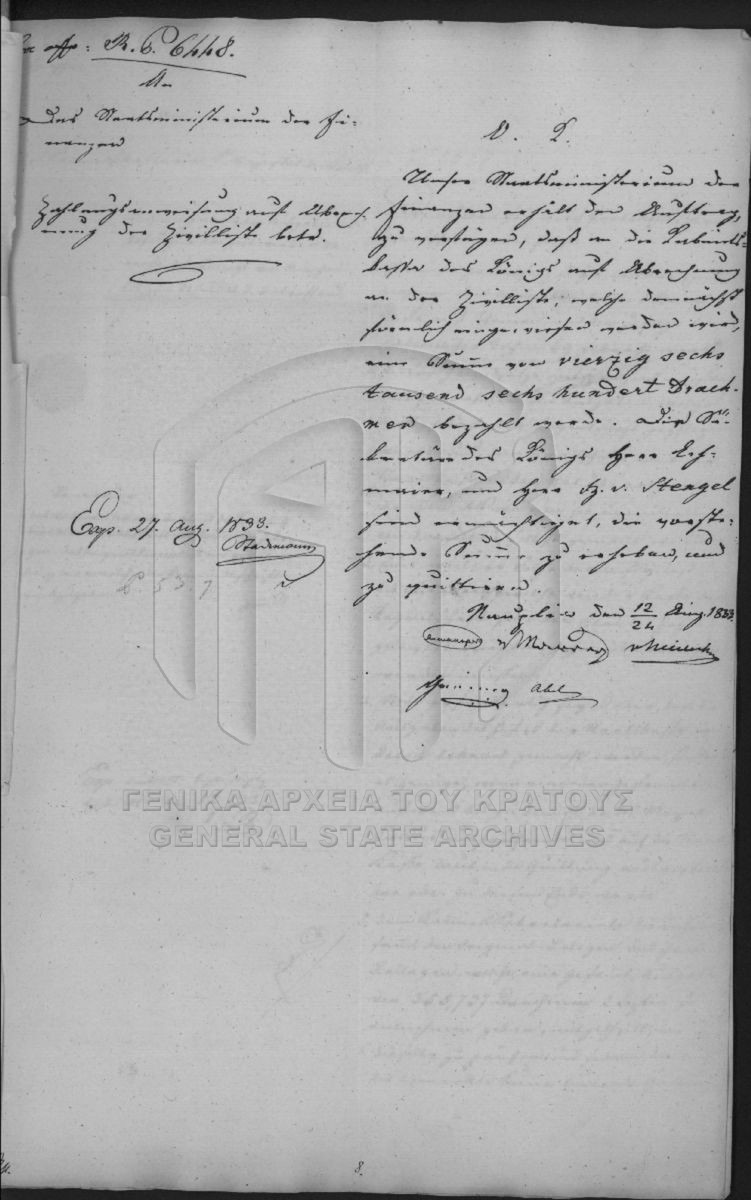 R. S. 6448.
An
Das Staatsministerium der Fi-
nanzen
Zahlungsanweisung auf Abrech-
nung der Zivilliste betr.
O. I.
Unser Staatsministerium der
Finanzen erhält den Auftrag,
zu verfügen, daß an die Kabinets-
kassa des Königs auf Abrechnung
an der Zivilliste, welche demnächst
förmlich eingewiesen werden wird,
eine Summe von vierzig sechs
tausend sechs hundert Drach-
men bezahlt werde. Die Se-
kretäre des Königs Herr Leh-
maier, und Herr Fz. v. Stengel
sind ermächtiget, die vorste-
hende Summe zu erheben, und
zu quittiren.
Nauplia den 12/24 Aug. 1833.
Armansperg vMaurer vHeideck
Abel
Exp. 27. Aug. 1833.
Stademann
ΓΕΝΙΚΑ ΑΡΧΕΙΑ ΤΟΥ ΚΡΑΤΟΥΣ
GENERAL STATE ARCHIVES
8.